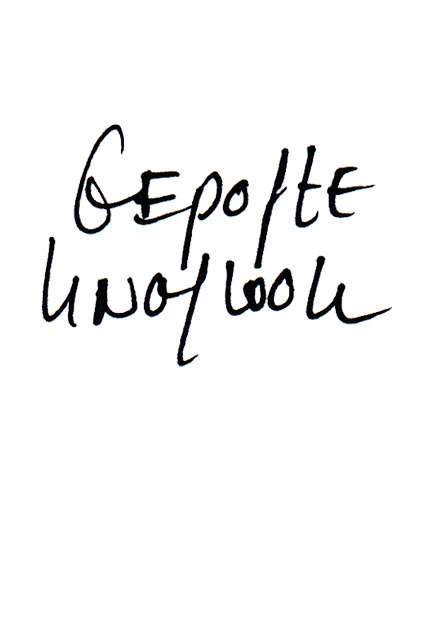 GEPOFTE
KNOFLOOK